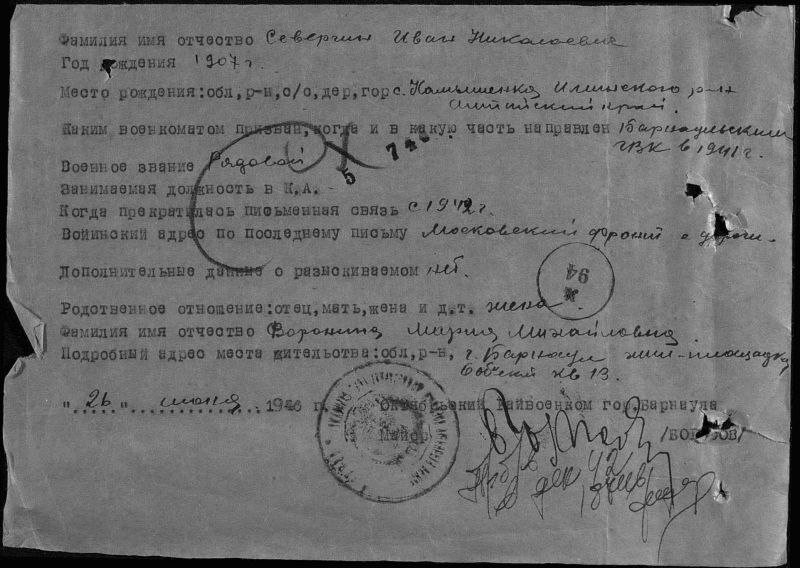 Фамилия имя отчество Северчин Иван Николаевич
Год рождения 1907 г.
Место рождения: обл, р-н, с/с, дер, гор с. Камышенка Илинского р-на
Алтайский край.
Каким военкоматом призван, когда и в какую часть направлен Барнаульским
ГВК в 1941 г.
Военное звание Рядовой
Занимаемая должность в К.А. -
Когда прекратилась письменная связь с 1942 г.
Войинский адрес по последнему письму Московский фронт с дороги.
Дополнительные данные о разыскиваемом нет.
94
Родственное отношение: отец, мать, жена и д.т. жена
Фамилия имя отчество Воронина Мария Михайловна
Подробный адрес места жительства: обл, р-н, г. Барнаул жил-площадка
кв 13.
"26" июня 1946 г. Октябрьский райвоенком гор. Барнаула
Майор /БОРИСОВ/
дек 42